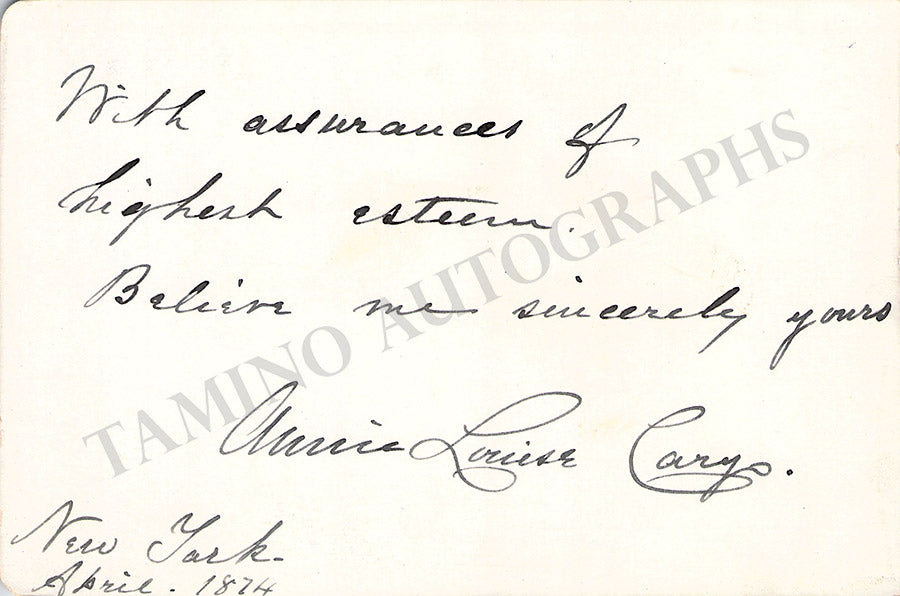 With assurances of
highest esteem.
Believe me sincerely yours
Annie Louise Cary.
New York.
April. 1874
TAMINO AUTOGRAPHS